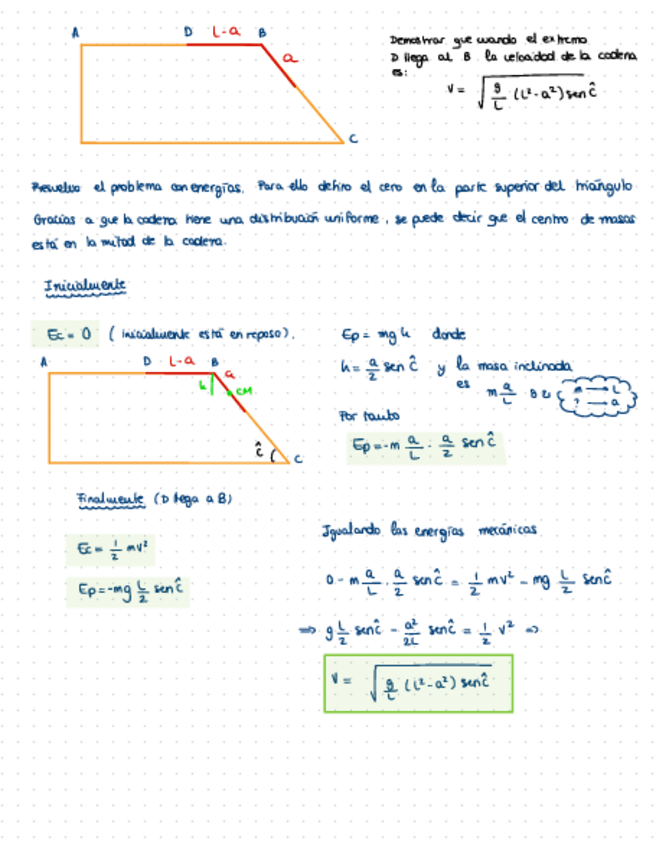 A D L-a B
a
C
Demostrar que cuando el extremo
D llega al B la velocidad de la cadena
es:
V = √(g/L (L²-a²) sen Ĉ)
Resuelvo el problema con energías. Para ello defino el cero en la parte superior del triángulo
Gracias a que la cadena tiene una distribución uniforme, se puede decir que el centro de masas
está en la mitad de la cadena.
Inicialmente
Ec = 0 (inicialmente está en reposo).
Ep = mgh donde
h = a/2 sen Ĉ y la masa inclinada
es m a/L
m → L
? → a
Por tanto
Ep = -m a/L · a/2 sen Ĉ
A D L-a B
a
h CM
Ĉ C
Finalmente (D llega a B)
Ec = 1/2 mv²
Ep = -mg L/2 sen Ĉ
Igualando las energías mecánicas
0 - m a/L · a/2 sen Ĉ = 1/2 mv² - mg L/2 sen Ĉ
⇒ g L/2 sen Ĉ - a²/2L sen Ĉ = 1/2 v² ⇒
V = √(g/L (L²-a²) sen Ĉ)